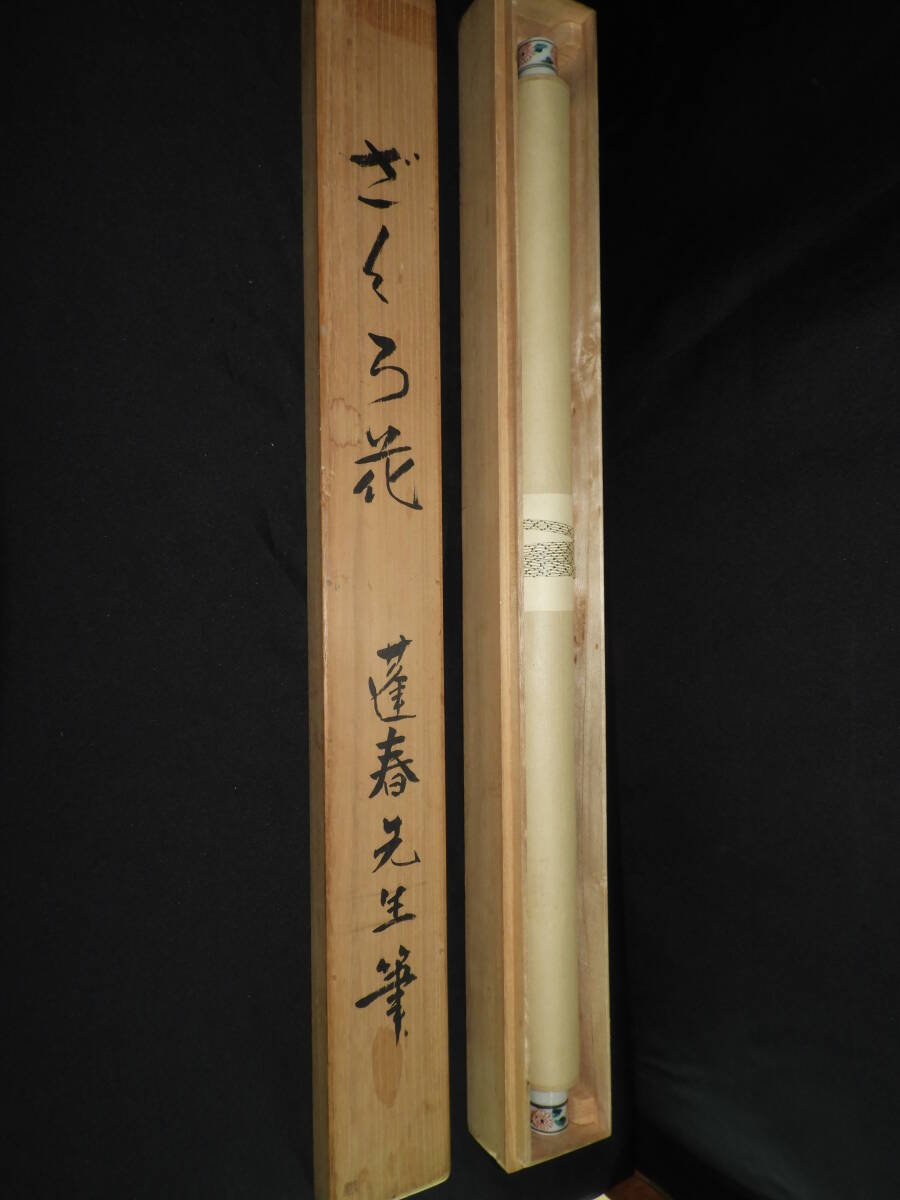 ざくろ花 蓬春先生筆